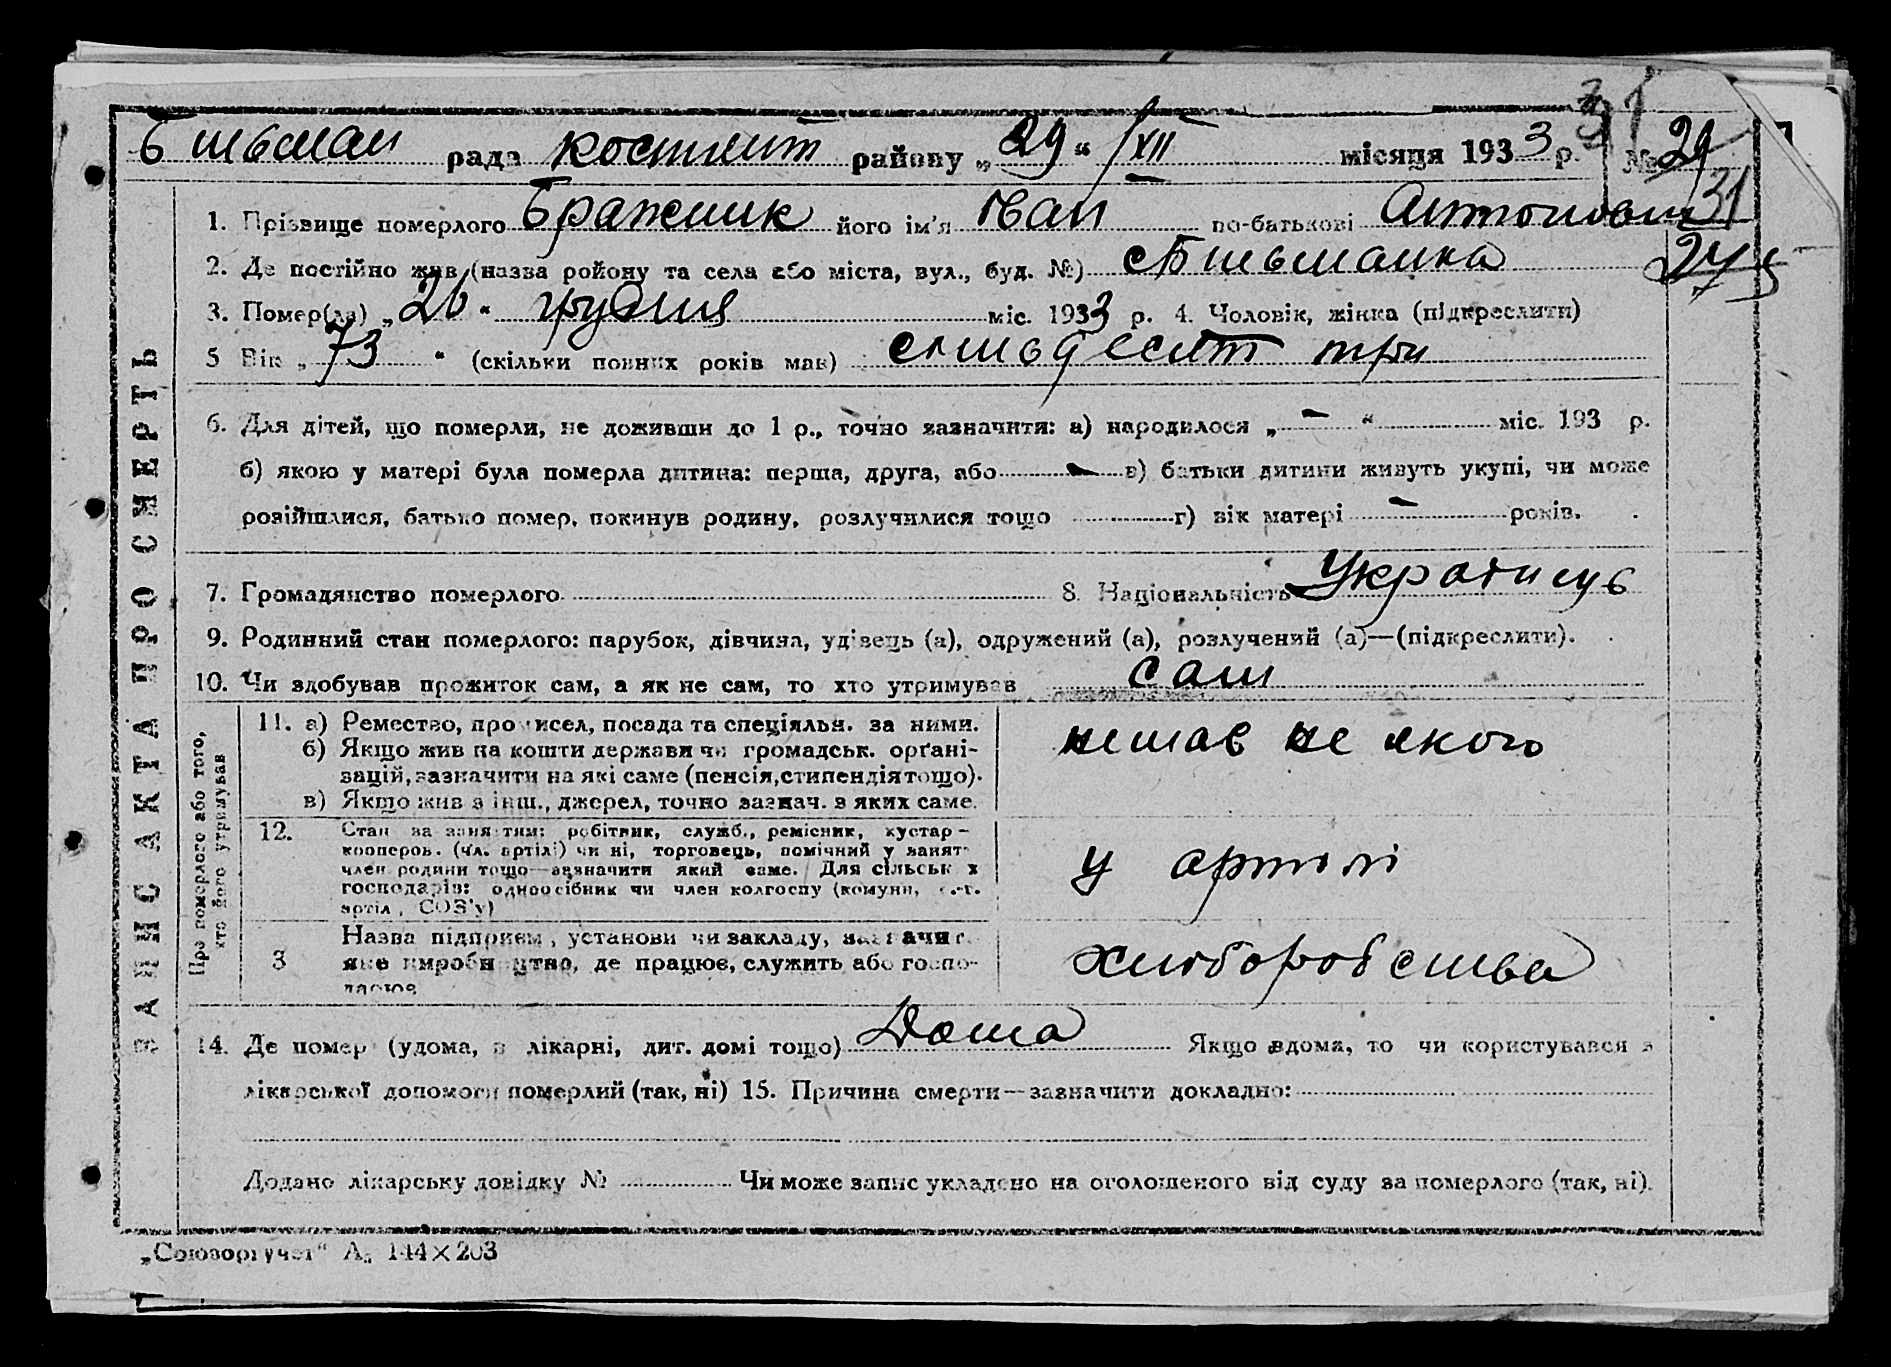 Більман рада Костянт району „29“ XII місяця 1933 р. № 29
31
1. Прізвище померлого Бражник його ім'я Іван по-батькові Антонович
2. Де постійно жив (назва ройону та села або міста, вул., буд. №) с Більманка
3. Помер(ла) „26“ грудня міс. 1933 р. 4. Чоловік, жінка (підкреслити)
5 Вік „73“ (скільки повних років мав) сімьдесят три
6. Для дітей, що померли, не доживши до 1 р., точно зазначити: а) народилося „ – “ міс. 193 р.
б) якою у матері була померла дитина: перша, друга, або – в) батьки дитини живуть укупі, чи може
розійшлися, батько помер, покинув родину, розлучилися тощо г) вік матері – років.
7. Громадянство померлого 8. Національність
9. Родинний стан померлого: парубок, дівчина, удівець (а), одружений (а), розлучений (а)—(підкреслити).
10. Чи здобував прожиток сам, а як не сам, то хто утримував сам
ЗАПИС АКТА ПРО СМЕРТЬ
Про померлого або того,
хто його утримував
11. а) Ремество, промисел, посада та спеціяльн. за ними.
б) Якщо жив на кошти держави чи громадськ. орґані-
зацій, зазначити на які саме (пенсія, стипендія тощо).
в) Якщо жив з інш., джерел, точно зазнач. з яких саме.
немав не якого
12. Стан за заняттям: робітник, служб., ремісник, кустар-
кооперов. (чл. артілі) чи ні, торговець, помічний у занят.
член родини тощо—зазначити який саме. Для сільськ х
господарів: одноосібник чи член колгоспу (комуни, с.-г.
артіл, СОЗ'у)
у артілі
3 Назва підприєм, установи чи закладу, зазначит.
яке виробництво, де працює, служить або госпо-
дарює
хліборобства
14. Де помер (удома, в лікарні, дит. домі тощо) Дома Якщо вдома, то чи користувався з
лікарської допомоги померлий (так, ні) 15. Причина смерти—зазначити докладно:
Додано лікарську довідку № Чи може запис укладено на оголошеного від суду за померлого (так, ні).
„Союзоргучет“ А₅ 144×203